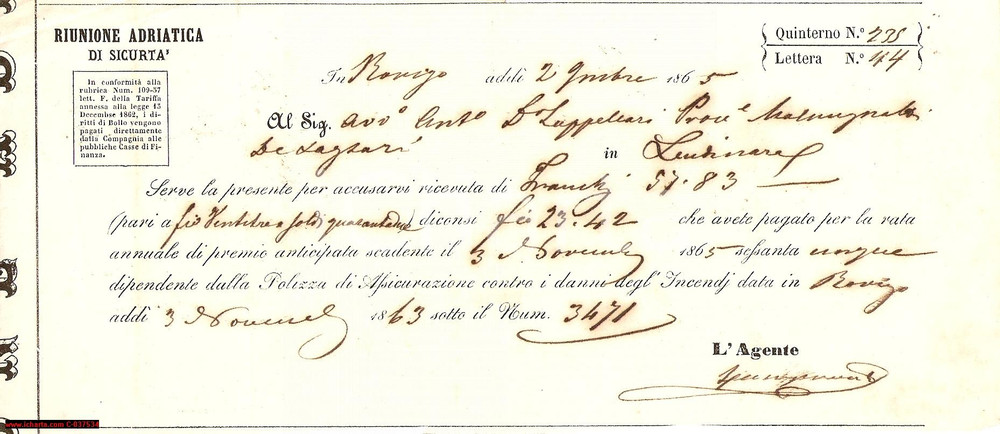 RIUNIONE ADRIATICA
DI SICURTA'
In conformità alla
rubrica Num. 109-57
lett. F. della Tariffa
annessa alla legge 13
Decembre 1862, i di-
ritti di Bollo vengono
pagati direttamente
dalla Compagnia alle
pubbliche Casse di Fi-
nanza.
Quinterno N.º 235
Lettera N.º 44
In Rovigo addì 2 9mbre 1865
Al Sig. Avvº Antº Dr Cappellari
in Lendinara
Serve la presente per accusarvi ricevuta di Franchi 57.83
(pari a fio Ventitre e soldi quarantadue) diconsi fio 23.42 che avete pagato per la rata
annuale di premio anticipata scadente il 3 Novembe 1865 sessanta cinque
dipendente dalla Polizza di Assicurazione contro i danni degl' Incendj data in Rovigo
addì 3 Novembe 1863 sotto il Num. 3471
L'Agente
www.icharta.com C-037534